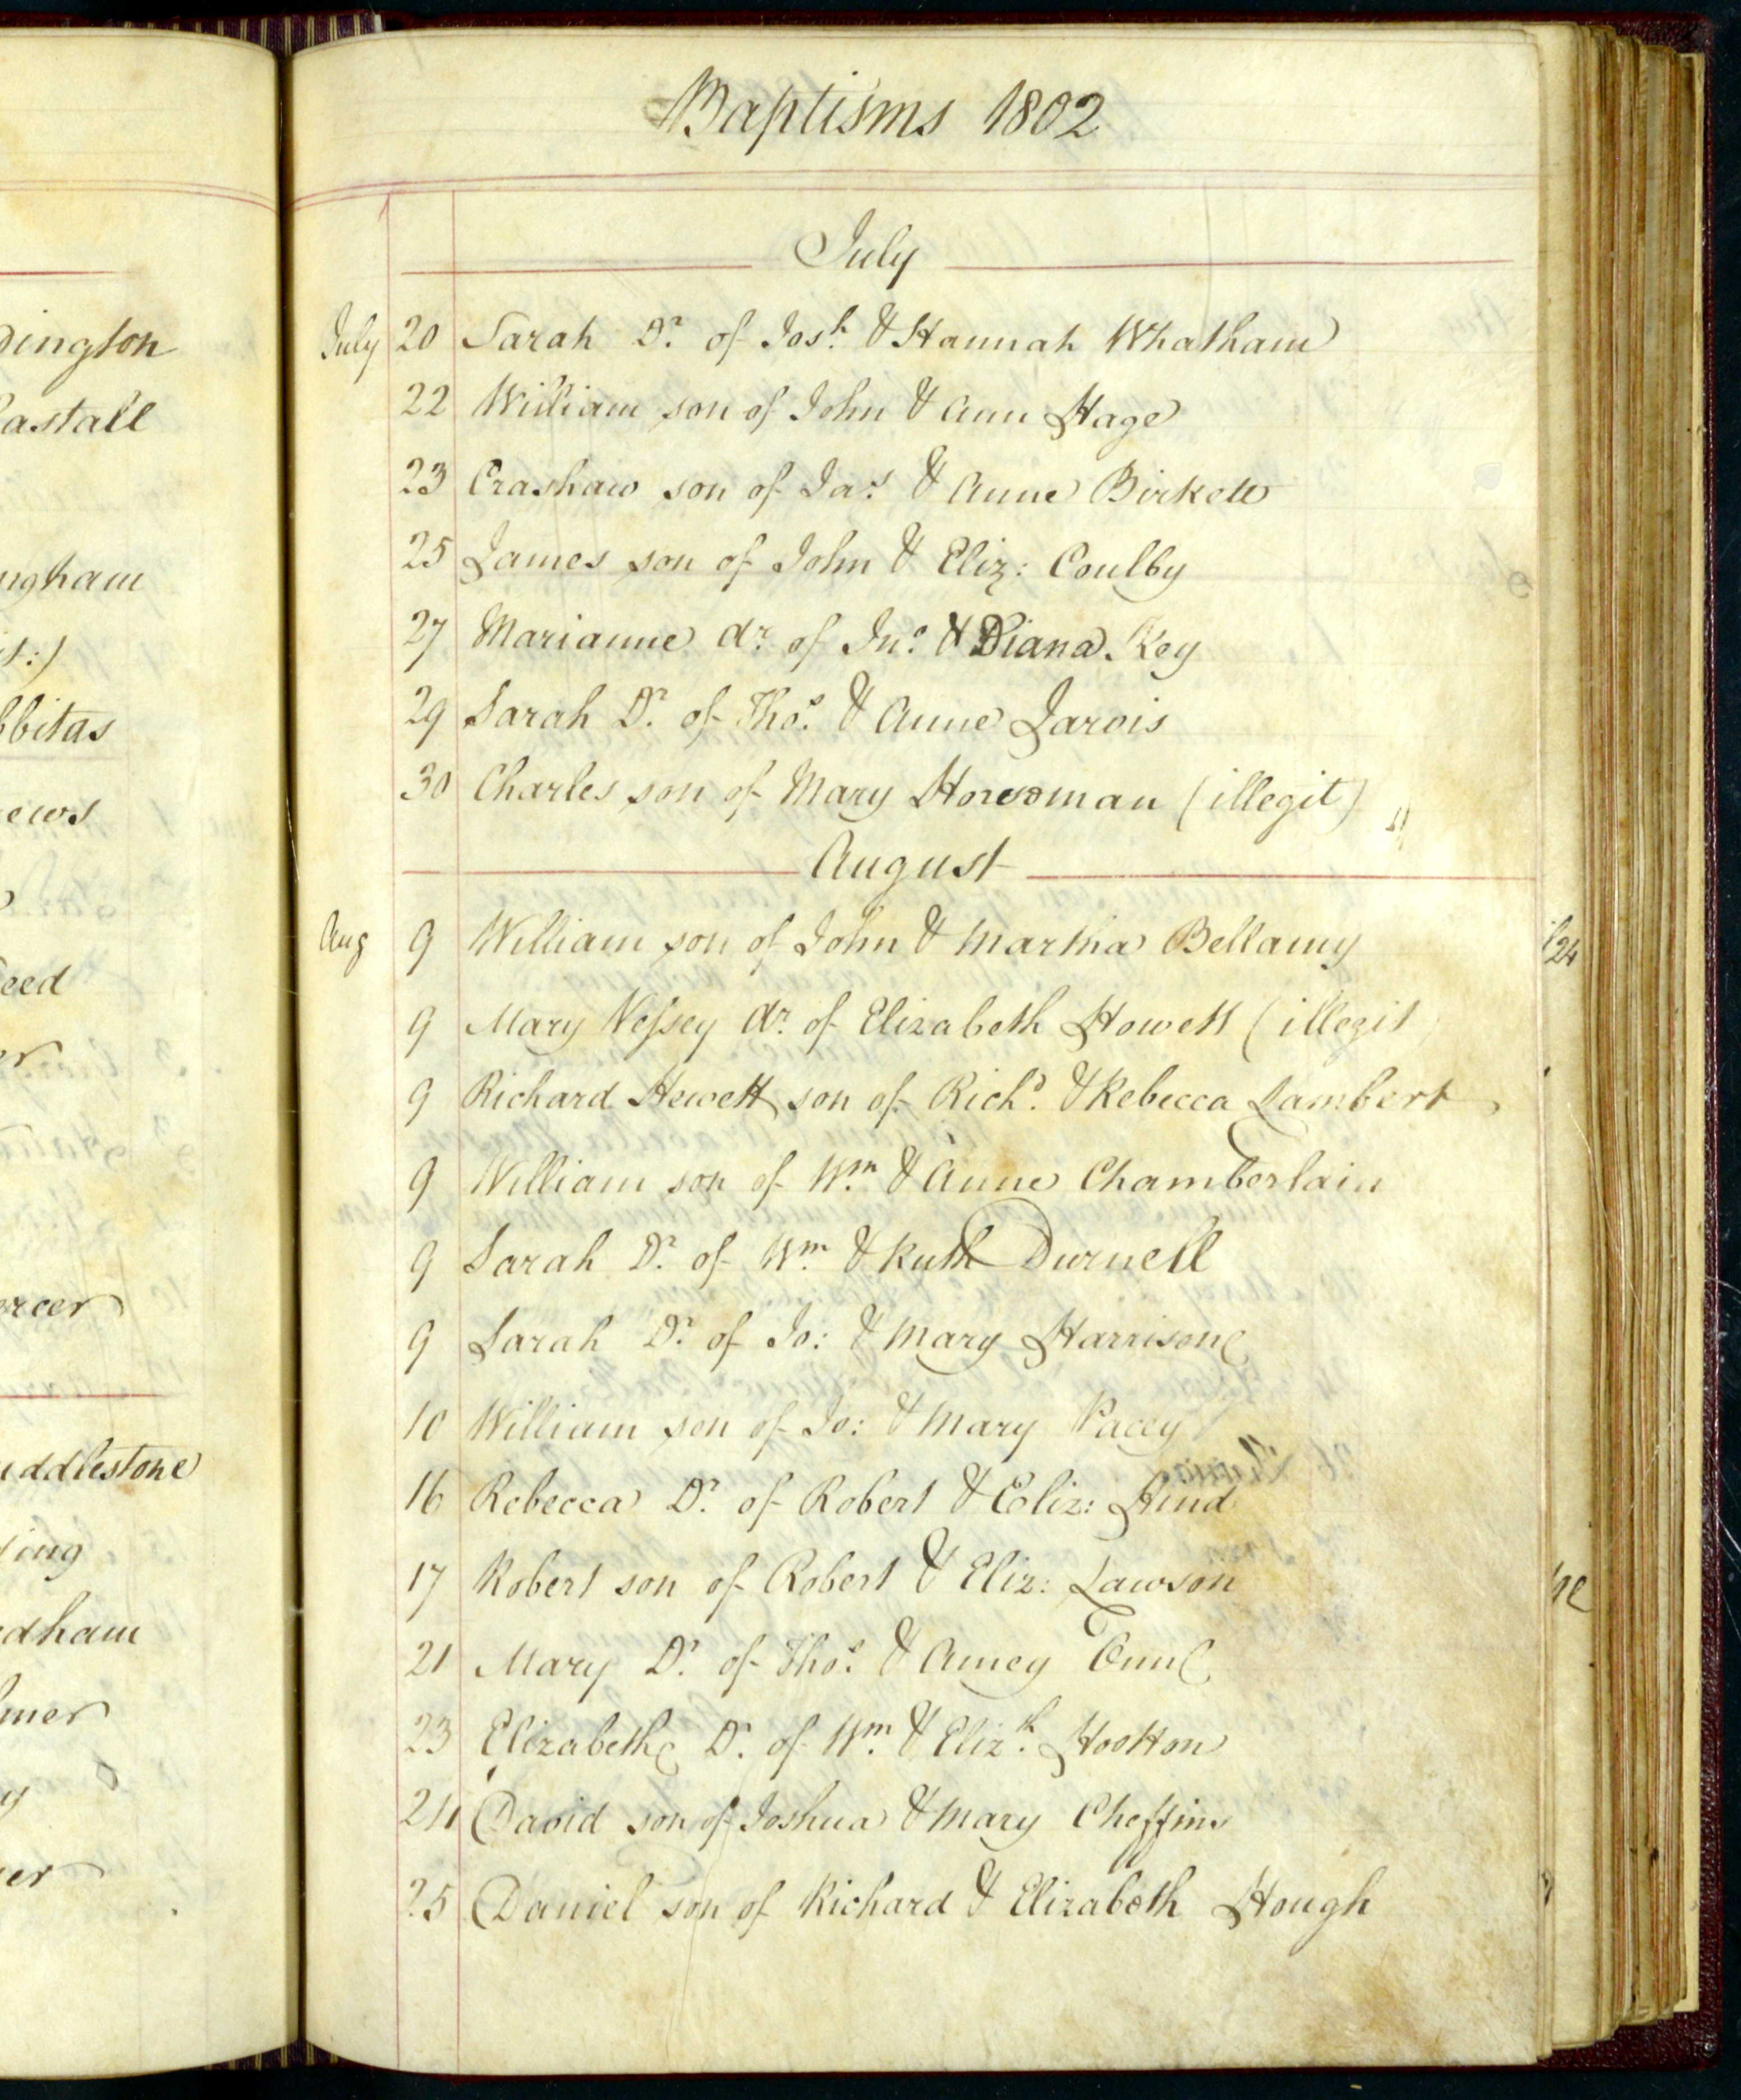 Baptisms 1802
July
July 20 Sarah Dr. of Josh. & Hannah Whatham
22 William son of John & Ann Hage
23 Crashaw son of Jas. & Anne Birkett
25 James son of John & Eliz: Coulby
27 Marianne dr. of Jno. & Diana Key
29 Sarah Dr. of Thos. & Anne Jarvis
30 Charles son of Mary (illegit)
August
Aug 9 William son of John & Martha Bellamy
9 Mary Vessey dr. of Elizabeth Howett (illegit
9 Richard Hewett son of Richd. & Rebecca Lambert
9 William son of Wm. & Anne Chamberlain
9 Sarah Dr. of Wm. & Ruth Durnell
9 Sarah Dr. of Jo: & Mary Harrison
10 William son of Jo: & Mary Pacey
16 Rebecca Dr. of Robert & Eliz: Hind
17 Robert son of Robert & Eliz: Lawson
21 Mary Dr. of Thos. & Amey
23 Elizabeth Dr. of Wm. & Elizh. Hootton
24 David son of Joshua & Mary Cheffins
25 Daniel son of Richard & Elizabeth Hough
dington
astall
ngham
bbitas
ews
eed
er
ercer
uddlestone
ing
dham
mer
er
24